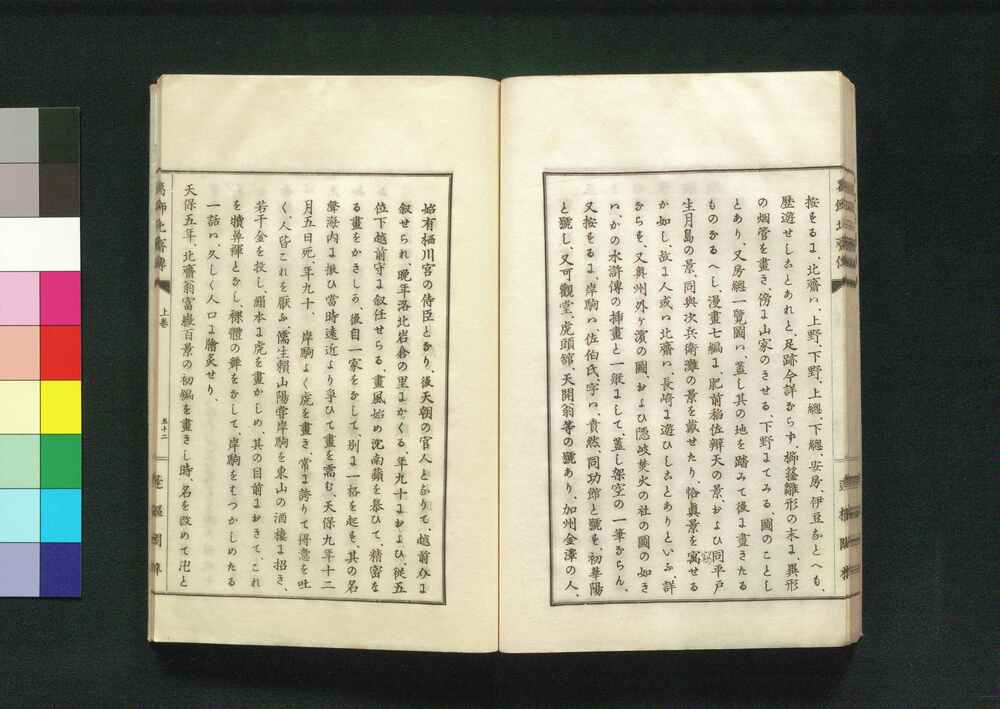 按ずるに、北齋ハ、上野、下野、上總、下總、安房、伊豆などへも、
歴遊せしことあれと、足跡今詳ならず、櫛𥫣雛形の末に、異形
の烟管を畫き、傍に山家のきせる、下野にてみる、圖のことし
とあり、又房總一覽圖ハ、蓋し其の地を踏みて後に畫きたる
ものなるへし、漫畫七編に、肥前稲佐辨天の景、および同平戸
生月島の景、同與次兵衛灘の景を載せたり、恰眞景を寫せる
か如し、故に人或ハ北齋ハ、長崎に遊ひしことありといふ、詳
ならす、又奥州外ケ濱の圖、および隠岐焚火の社の圖の如き
ハ、かの水滸傳の挿畫と一般にして、蓋し架空の一筆ならん、
又按ずるに、岸駒ハ、佐伯氏、字ハ賁然、同功館と號す、初華陽
と號し、又可觀堂、虎頭館、天開翁等の號あり、加州金澤の人、
始有栖川宮の侍臣となり、後天朝の官人となりて、越前介に
叙せられ、晩年洛北岩倉の里にかくる、年九十におよひ、從五
位下越前守に叙任せらる、畫風始め沈南蘋を慕ひて、精密な
る畫をかきしが、後自一家をなして、別に一格を起す、其の名
聲海内に振ひ、當時遠近より爭ひて畫を需む、天保九年十二
月五日死、年九十、 岸駒よく虎を畫き、常に誇りて得意を吐
く、人皆これを厭ふ、儒生賴山陽嘗岸駒を東山の酒樓に招き、
若干金を投し、絹本に虎を畫かしめ、其の目前におきて、これ
を犢鼻褌となし、裸體の舞をなして、岸駒をはつかしめたる
一話ハ、久しく人口に膾炙せり、
天保五年、北齋翁富嶽百景の初編を畫きし時、名を改めて卍と
上巻
五十二